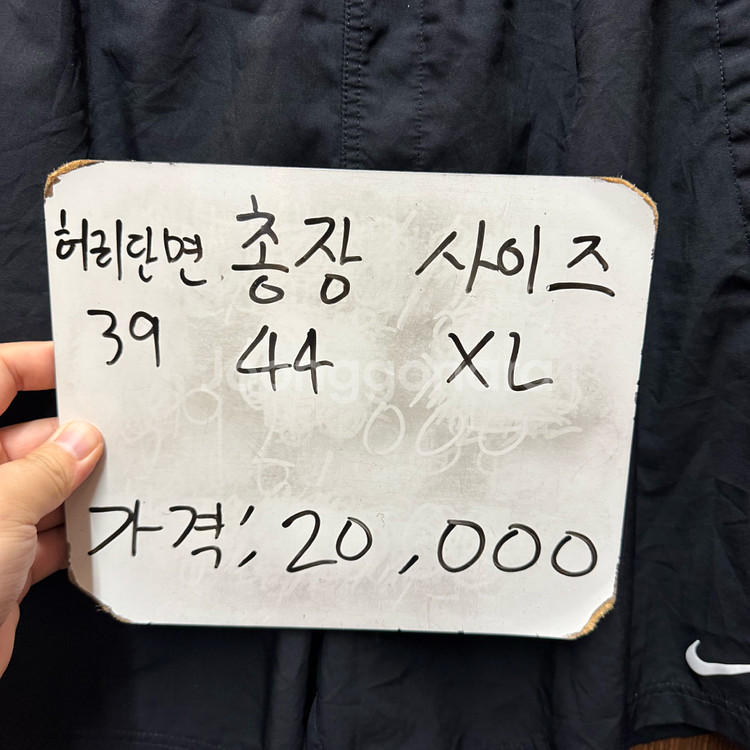 허리단면 총장 사이즈
39 44 XL
Joonggonara
가격; 20,000